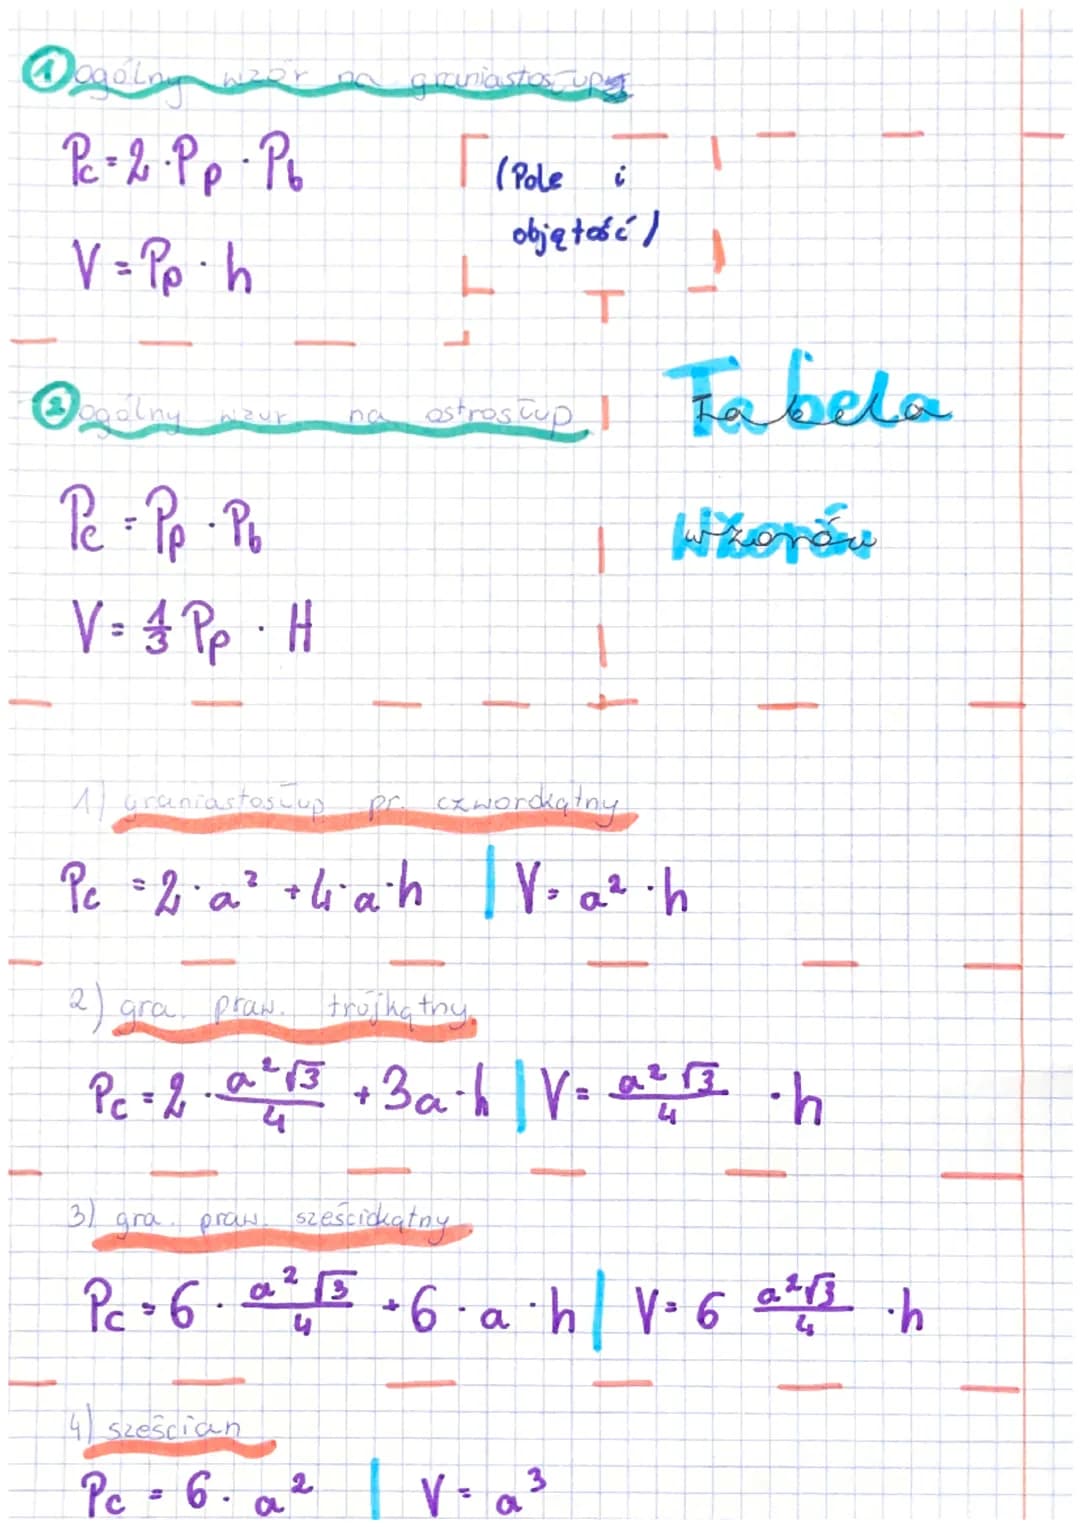 1 ogólny wzór na graniastosłupy
Pc = 2 · Pp · Pb
(Pole i
objętość)
V = Pp · h
Tabela
wzorów
2 ogólny wzur na ostrosłup
Pc = Pp · Pb
V = 1/3 Pp · H
1) graniastosłup pr. czworokątny
Pc = 2 · a² + 4 · a · h | V = a² · h
2) gra. praw. trójkątny
Pc = 2 · a²√3/4 + 3a · h | V = a²√3/4 · h
3) gra. praw. sześciokątny
Pc = 6 · a²√3/4 + 6 · a · h | V = 6 a²√3/4 · h
4) sześcian
Pc = 6 · a² | V = a³